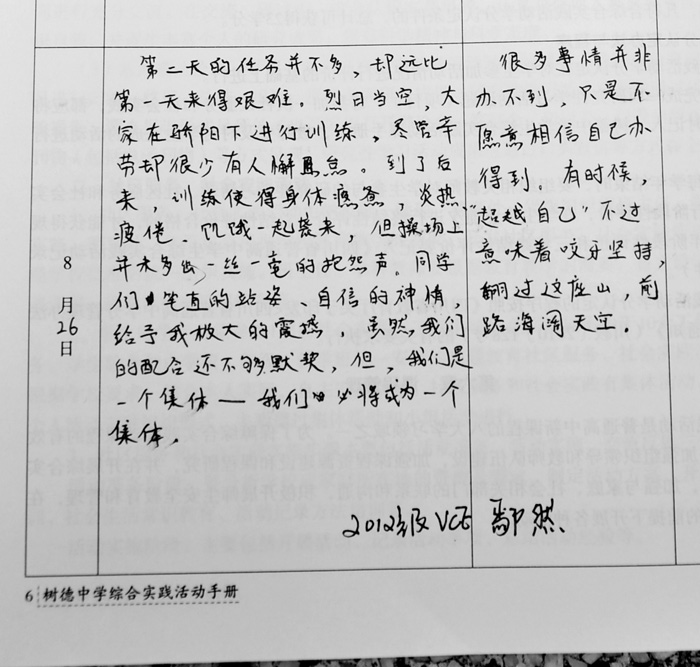 第二天的任务并不多，却远比
第一天来得艰难。烈日当空，大
家在骄阳下进行训练，尽管辛
劳却很少有人懈怠。到了后
来，训练使得身体疲惫，炎热、
疲倦、饥饿一起袭来，但操场上
并未多出一丝一毫的抱怨声。同学
们笔直的站姿、自信的神情
给予我极大的震撼。虽然，我们
的配合还不够默契，但，我们是
一个集体——我们必将成为一个
集体。
很多事情并非
办不到，只是不
愿意相信自己办
得到。有时候
“超越自己”不过
意味着咬牙坚持，
翻过这座山，前
路海阔天空。
8
月
26
日
2012级 VCE 鄢然
6 树德中学综合实践活动手册